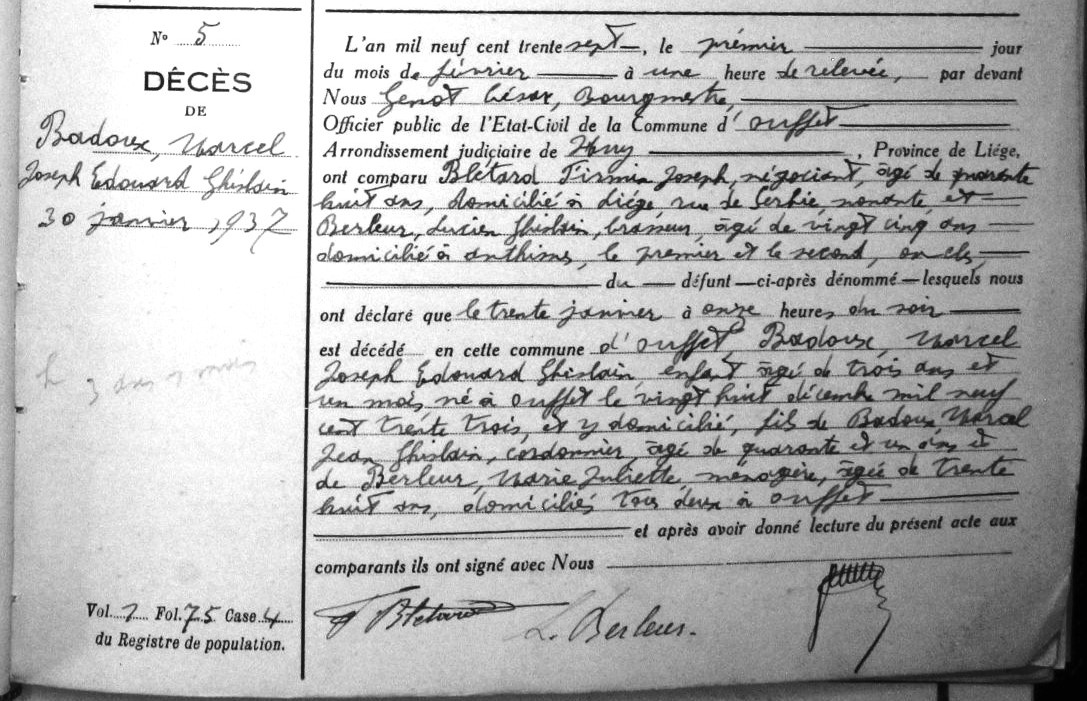 N° 5
DÉCÈS
DE
Badoux, Marcel
Joseph Edouard Ghislain
30 janvier 1937
3 ans 1 mois
Vol. 7 Fol. 75 Case 4
du Registre de population.
L'an mil neuf cent trente sept, le prémier jour
du mois de février à une heure de relevée, par devant
Nous Genot César, Bourgmestre,
Officier public de l'Etat-Civil de la Commune d'Ouffet
Arrondissement judiciaire de Huy, Province de Liége,
ont comparu Blétard Firmin Joseph, négociant, âgé de quarante
huit ans, domicilié à Liége, rue de Serbie nonante et
Berleur, Lucien Ghislain, brasseur, âgé de vingt cinq ans
domicilié à Anthisnes, le premier et le second, oncles,
du défunt — ci-après dénommé — lesquels nous
ont déclaré que le trente janvier à onze heures du soir
est décédé en cette commune d'Ouffet Badoux, Marcel
Joseph Edouard Ghislain, enfant âgé de trois ans et
un mois, né à Ouffet le vingt huit décembre mil neuf
cent trente trois, et y domicilié, fils de Badoux, Marcel
Jean Ghislain, cordonnier, âgé de quarante et un ans et
de Berleur, Marie Juliette ménagère, âgée de trente
huit ans, domiciliés tous deux à Ouffet
et après avoir donné lecture du présent acte aux
comparants ils ont signé avec Nous
F Bletard
L. Berleur.